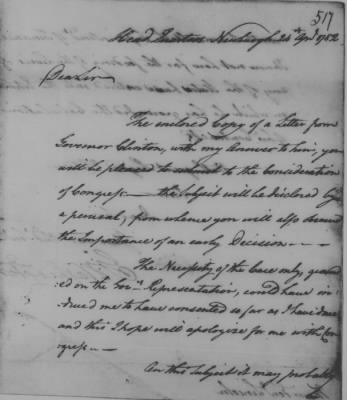 517
Head Quarters Newburgh 24th Apr. 1782
Dear Sir
The enclosed Copy of a Letter from
Governor Clinton, with my Answer to him, you
will be pleased to submit to the Consideration
of Congress — the Subject will be declared by
a perusal, from whence you will also observe
the Importance of an early Decision
The Necessity of the Case only, ground
-ed on the Gov.rs Representation, could have in-
duced me to have consented so far as I have done
and this I hope will apologize for me with Con
gress —
On this Subject it may probably